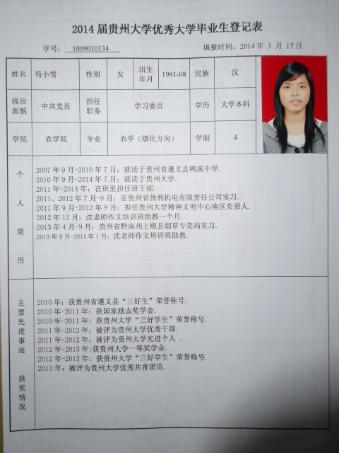 2014 届贵州大学优秀大学毕业生登记表
学号： 1009010134 填报时间：2014 年 3 月 17日
姓名 苟小雪 性别 女 出生年月 1991-08 民族 汉
政治面貌 中共党员 担任职务 学习委员 学历 大学本科
学院 农学院 专业 农学（烟化方向） 学制 4
个人简历
2007 年 9 月-2010 年 7 月：就读于贵州省遵义县鸭溪中学.
2010 年 9 月-2014 年 7 月：就读于贵州大学.
2011 年-2014 年：在班里担任班干部.
2011、2012 年 7 月-9 月：在贵州省优利机电有限责任公司实习.
2011 年 9 月-2012 年 9 月：担任贵州大学精神文明中心南区负责人.
2012 年 12 月：沈老师作文培训班助教一个月.
2013 年 4 月-9 月：贵州省黔南州上 县烟草专卖局实习.
2013 年 9 月-2014 年 1 月：沈老师作文培训班助教.
主要先进事迹 获奖情况
2010 年：获贵州省遵义县“三好生”荣誉称号.
2010 年-2011 年：获国家励志奖学金.
2010 年-2011 年：获贵州大学“三好学生”荣誉称号.
2011 年-2012 年：被评为贵州大学优秀干部.
2011 年-2012 年：被评为贵州大学先进个人 .
2012 年-2013 年：获贵州大学一等奖学金.
2012 年-2013 年：获贵州大学“三好学生”荣誉称号.
2013 年：被评为贵州大学优秀共青团员.